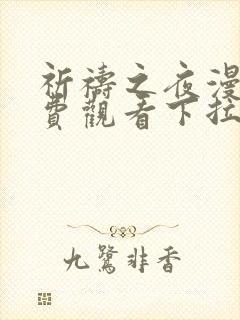 祈禱之夜漫
費觀看下拉
九鷺非香